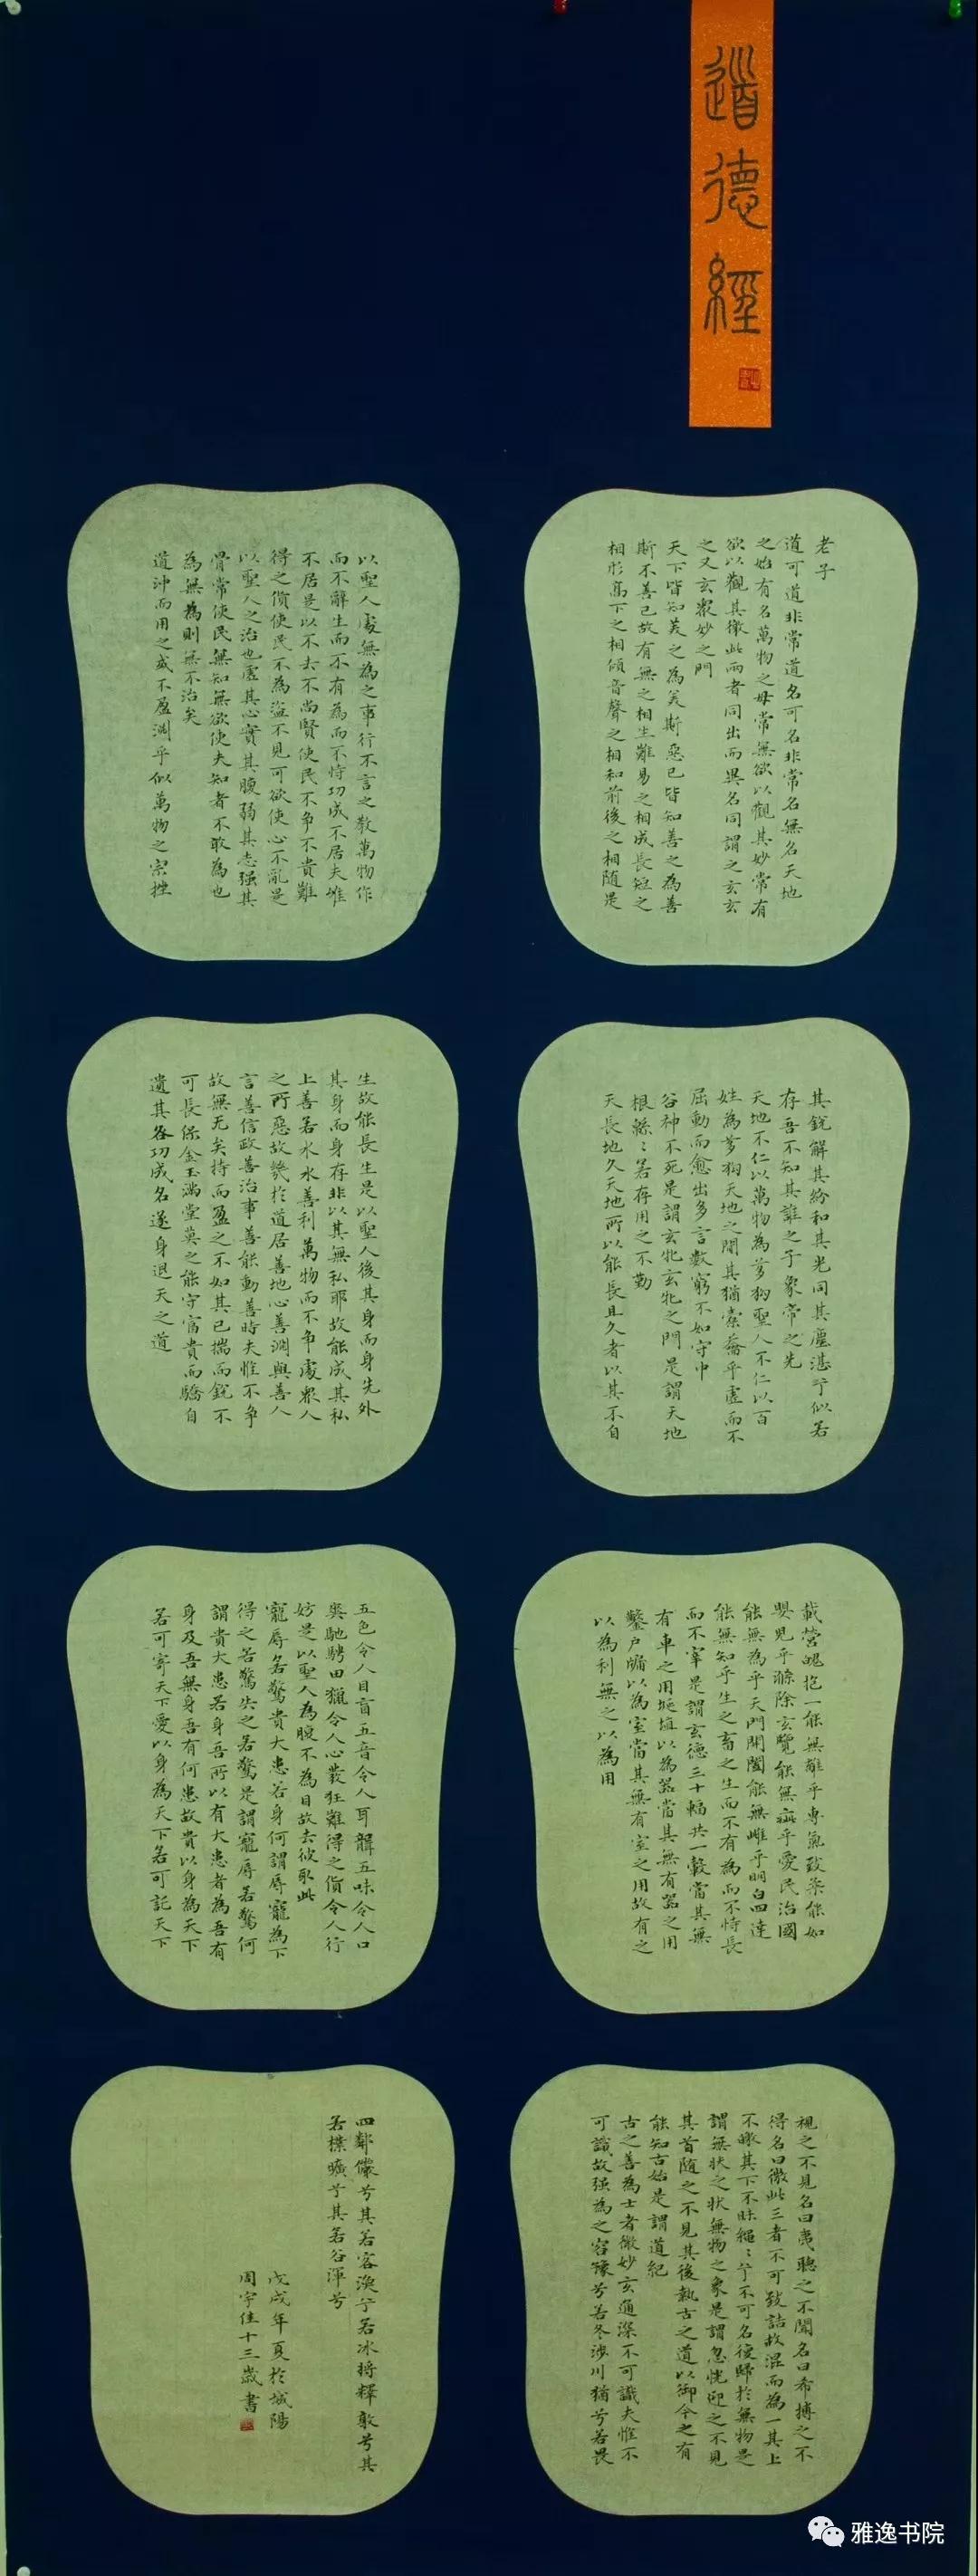 道德經
老子
道可道非常道名可名非常名無名天地
之始有名萬物之母常無欲以觀其妙常有
欲以觀其徼此兩者同出而異名同謂之玄玄
之又玄眾妙之門
天下皆知美之為美斯惡已皆知善之為善
斯不善已故有無之相生難易之相成長短之
相形高下之相傾音聲之相和前後之相隨是
以聖人處無為之事行不言之教萬物作
而不辭生而不有為而不恃功成不居夫惟
不居是以不去不尚賢使民不爭不貴難
得之貨使民不為盜不見可欲使心不亂是
以聖人之治也虛其心實其腹弱其志强其
骨常使民無知無欲使夫知者不敢為也
為無為則無不治矣
道沖而用之或不盈淵乎似萬物之宗挫
其銳解其紛和其光同其塵湛兮似若
存吾不知其誰之子象帝之先
天地不仁以萬物為芻狗聖人不仁以百
姓為芻狗天地之間其猶橐籥乎虛而不
屈動而愈出多言數窮不如守中
谷神不死是謂玄牝玄牝之門是謂天地
根緜〻若存用之不勤
天長地久天地所以能長且久者以其不自
生故能長生是以聖人後其身而身先外
其身而身存非以其無私耶故能成其私
上善若水水善利萬物而不爭處眾人
之所惡故幾於道居善地心善淵與善人
言善信政善治事善能動善時夫惟不爭
故無尤矣持而盈之不如其已揣而銳不
可長保金玉滿堂莫之能守富貴而驕自
遺其咎功成名遂身退天之道
載營魄抱一能無離乎專氣致柔能如
嬰兒乎滌除玄覽能無疵乎愛民治國
能無為乎天門開闔能無雌乎明白四達
能無知乎生之畜之生而不有為而不恃長
而不宰是謂玄德三十輻共一轂當其無
有車之用埏埴以為器當其無有器之用
鑿戶牖以為室當其無有室之用故有之
以為利無之以為用
五色令人目盲五音令人耳聾五味令人口
爽馳騁田獵令人心發狂難得之貨令人行
妨是以聖人為腹不為目故去彼取此
寵辱若驚貴大患若身何謂辱寵為下
得之若驚失之若驚是謂寵辱若驚何
謂貴大患若身吾所以有大患者為吾有
身及吾無身吾有何患故貴以身為天下
若可寄天下愛以身為天下若可託天下
視之不見名曰夷聽之不聞名曰希搏之不
得名曰微此三者不可致詰故混而為一其上
不皦其下不昧繩〻兮不可名復歸於無物是
謂無狀之狀無物之象是謂忽恍迎之不見
其首隨之不見其後執古之道以御今之有
能知古始是謂道紀
古之善為士者微妙玄通深不可識夫惟不
可識故强為之容豫兮若冬涉川猶兮若畏
四鄰儼兮其若客渙兮若冰將釋敦兮其
若樸曠兮其若谷渾兮
戊戌年夏於城陽
周宇佳十三歲書
雅逸书院